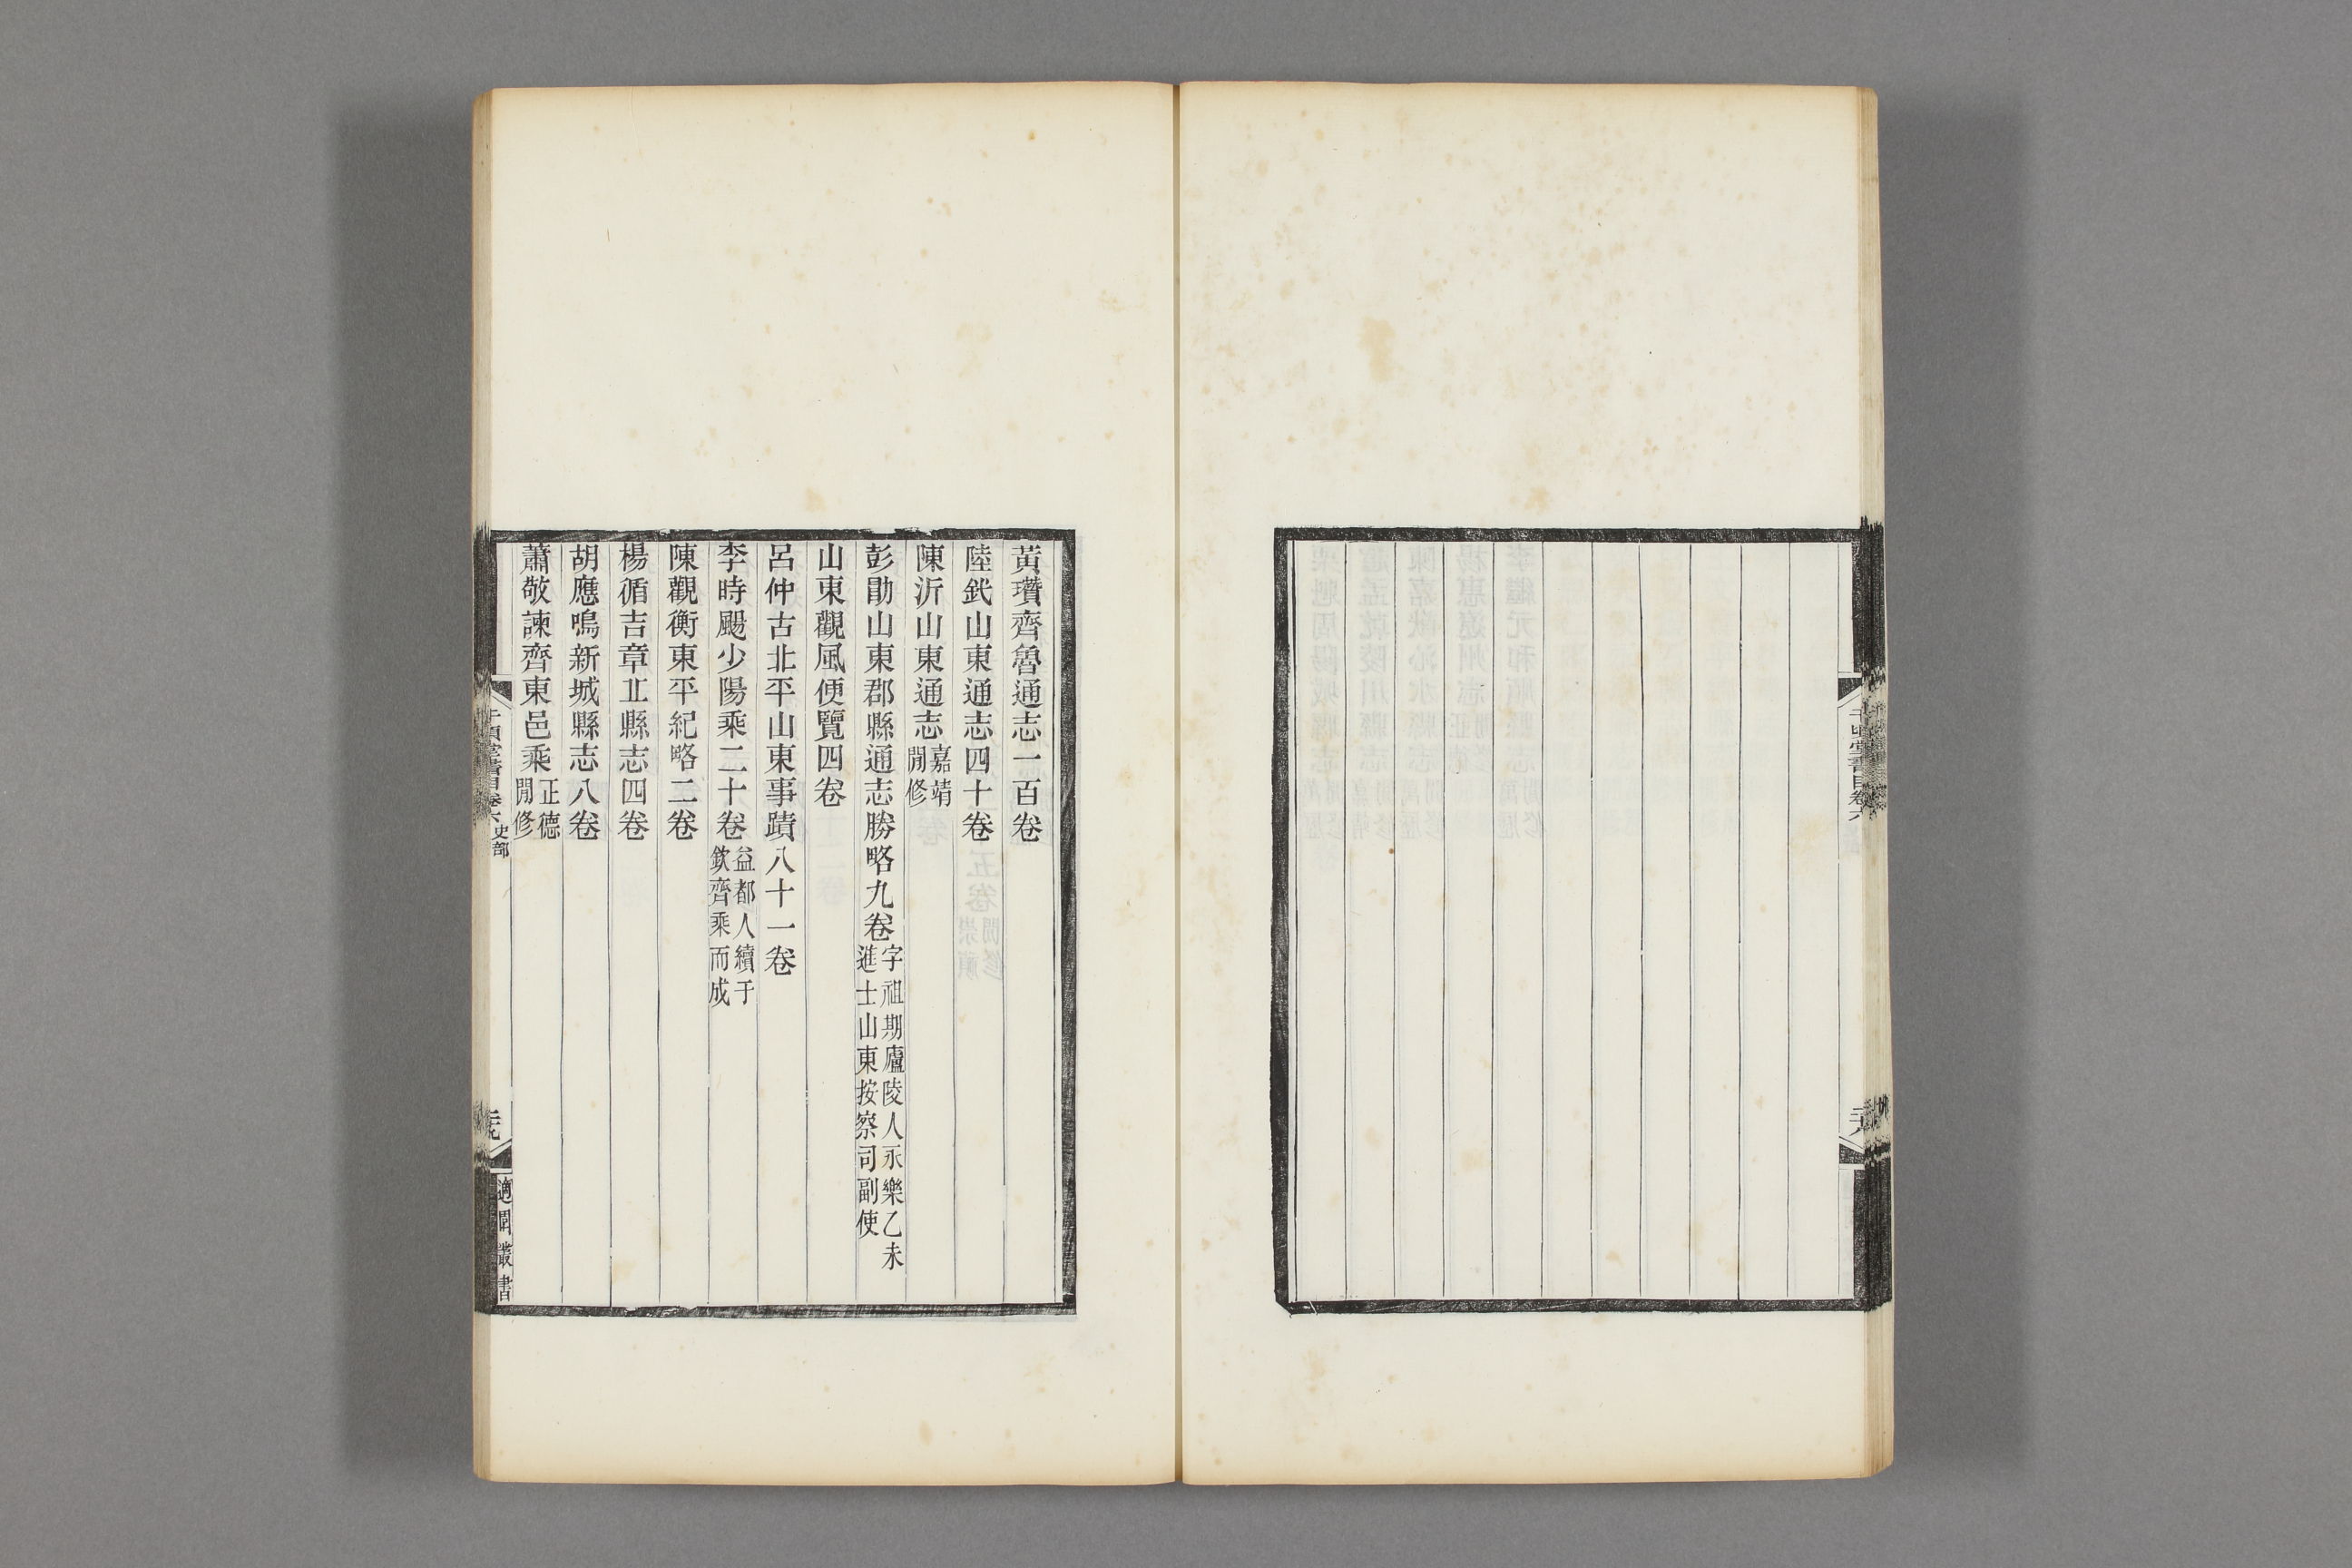 黃瓚齊魯通志一百卷
陸釴山東通志四十卷
陳沂山東通志嘉靖閒修
彭勖山東郡縣通志勝略九卷字祖期廬陵人永樂乙未進士山東按察司副使
山東觀風便覽四卷
呂仲古北平山東事蹟八十一卷
李時颺少陽乘二十卷益都人續于欽齊乘而成
陳觀衡東平紀略二卷
楊循吉章丠縣志四卷
胡應鳴新城縣志八卷
蕭敬諫齊東邑乘正德閒修
千頃堂書目卷六 史部
適園叢書